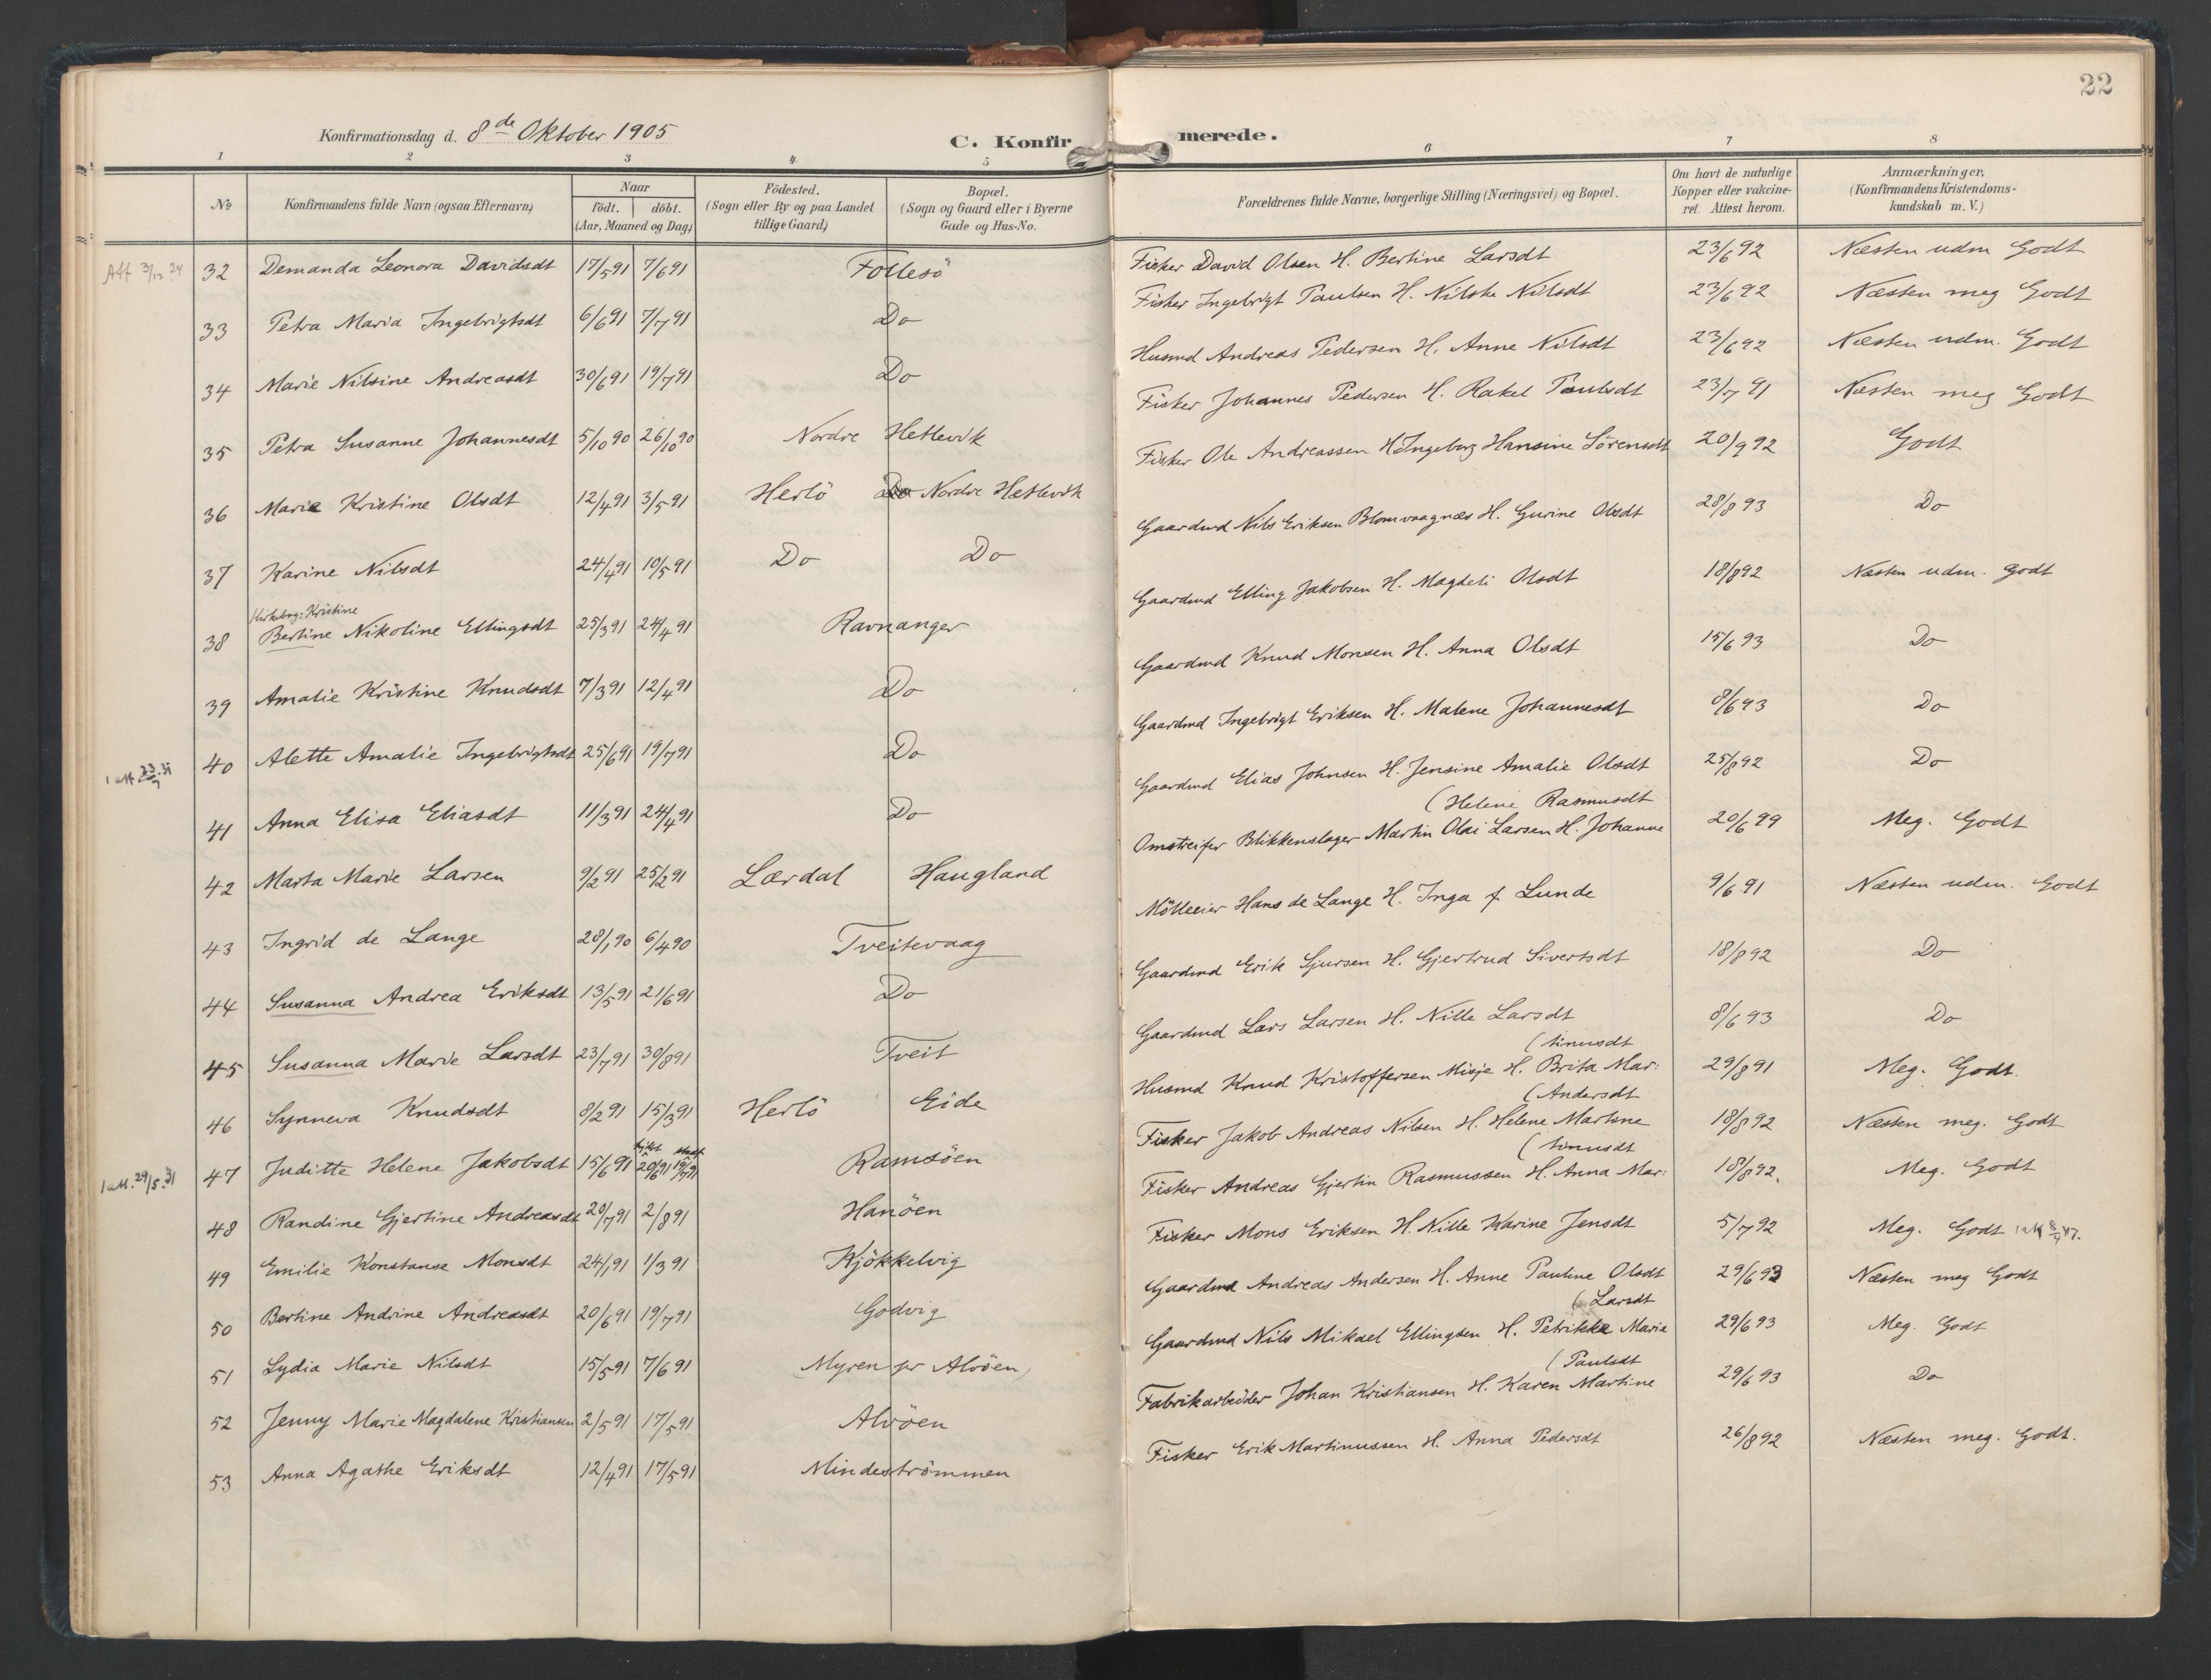 22
Konfirmationsdag d. 8de Oktober 1905
C. Konfirmerede.
1 2 3 4 5 6 7 8
No Konfirmandens fulde Navn (ogsaa Efternavn) Naar født. døbt. (Aar, Maaned og Dag) Födested. (Sogn eller By og paa Landet tillige Gaard) Bopæl. (Sogn og Gaard eller i Byerne Gade og Hus-No. Forældrenes fulde Navne, borgerlige Stilling (Næringsvei) og Bopæl. Om havt de naturlige Kopper eller vakcineret. Attest herom. Anmærkninger, (Konfirmandens Kristendomskundskab m. V.)
Att 3/12 24 32 Demanda Leonora Davidsdt 17/5 91 7/6 91 Follesö Fisker David Olsen H. Bertine Larsdt 23/6 92 Næsten udm Godt
33 Petra Maria Ingebrigtsdt 6/6 91 7/7 91 Do Fisker Ingebrigt Paulsen H. Nilske Nilsdt 23/6 92 Næsten meg Godt
34 Marie Nilsine Andreasdt 30/6 91 19/7 91 Do Husmd Andreas Pedersen H. Anne Nilsdt 23/6 92 Næsten udm. Godt
35 Petra Susanne Johannesdt 5/10 90 26/10 90 Nordre Hetlevik Fisker Johannes Pedersen H. Rakel Paulsdt 23/7 91 Næsten meg Godt
36 Marie Kristine Olsdt 12/4 91 3/5 91 Herlö Nordre Hetlevik Fisker Ole Andreassen H. Ingeborg Hansine Sörensdt 20/9 92 Godt
37 Karine Nilsdt 24/4 91 10/5 91 Do Do Gaardmd Nils Eriksen Blomvaagnæs H. Gurine Olsdt 28/8 93 Do
Kirkebog: Kristine
38 Bertine Nikoline Ellingsdt 25/3 91 24/4 91 Ravnanger Gaardmd Elling Jakobsen H. Magdeli Olsdt 18/8 92 Næsten udm. Godt
39 Amalie Kristine Knudsdt 7/3 91 12/4 91 Do Gaardmd Knud Monsen H. Anna Olsdt 15/6 93 Do
40 Alette Amalie Ingebrigtsdt 25/6 91 19/7 91 Do Gaardmd Ingebrigt Eriksen H. Malene Johannesdt 8/6 93 Do
1 att.
41 Anna Elisa Eliasdt 11/3 91 24/4 91 Do Gaardmd Elias Johnsen H. Jensine Amalie Olsdt 25/8 92 Do
(Helene Rasmusdt
42 Marta Marie Larsen 9/2 91 25/2 91 Lærdal Haugland Omstreifer Blikkenslager Martin Olai Larsen H. Johanne 20/6 99 Meg. Godt
43 Ingrid de Lange 28/1 90 6/4 90 Tveitevaag Mölleeier Hans de Lange H. Inga f Lunde 9/6 91 Næsten udm. Godt
44 Susanna Andrea Eriksdt 13/5 91 21/6 91 Do Gaardmd Erik Sjursen H. Gjertrud Sivertsdt 18/8 92 Do
45 Susanna Marie Larsdt 23/7 91 30/8 91 Tveit Gaardmd Lars Larsen H. Nille Larsdt 8/6 93 Do
(tinusdt
46 Synneva Knudsdt 8/2 91 15/3 91 Herlö Eide Husmd Knud Kristoffersen Misje H. Brita Mar: 29/8 91 Meg. Godt.
(Andersdt
1 att. 29/5.31 47 Juditte Helene Jakobsdt 15/6 91 20/6 91 19/7 91 Ramsöen Fisker Jakob Andreas Nilsen H. Helene Martine 18/8 92 Næsten meg. Godt
(tinusdt
48 Randine Gjertine Andreasdt 20/7 91 2/8 91 Hanöen Fisker Andreas Gjertin Rasmussen H. Anna Mar: 18/8 92. Meg. Godt
49 Emilie Konstanse Monsdt 24/1 91 1/3 91 Kjökkelvig Fisker Mons Eriksen H. Nille Karine Jensdt 5/7 92 Meg. Godt
50 Bertine Andrine Andreasdt 20/6 91 19/7 91 Godvig Gaardmd Andreas Andersen H. Anne Pauline Olsdt 29/6 93 Næsten meg Godt
(Larsdt
51 Lydia Marie Nilsdt 15/5 91 7/6 91 Myren pr Alvöen Gaardmd Nils Mikael Ellingsen H. Petrikke Marie 29/6 93 Meg. Godt
(Paulsdt
52 Jenny Marie Magdalene Kristiansen 2/5 91 17/5 91 Alvöen Fabrikarbeider Johan Kristiansen H. Karen Martine 29/6 93 Do
53 Anna Agathe Eriksdt 12/4 91 17/5 91 Mindeströmmen Fisker Erik Martinussen H. Anna Pedersdt 26/8 92 Næsten meg. Godt.